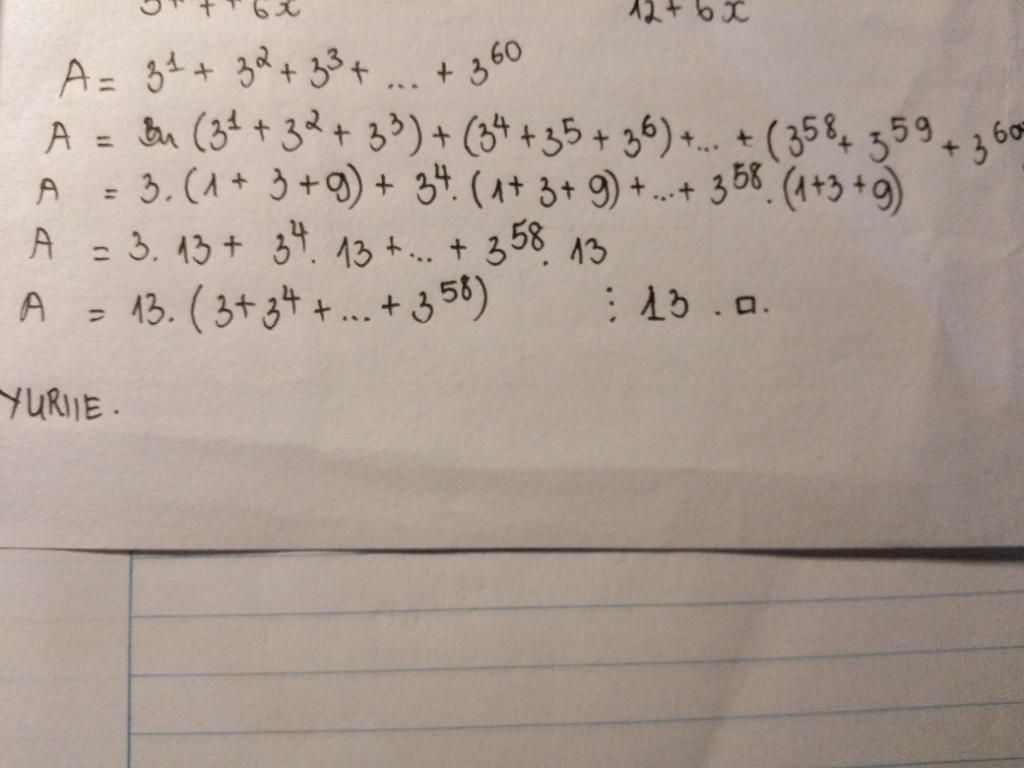 3+7+6x 12+6x
A = 3¹ + 3² + 3³ + ... + 3⁶⁰
A = (3¹ + 3² + 3³) + (3⁴ + 3⁵ + 3⁶) + ... + (3⁵⁸ + 3⁵⁹ + 3⁶⁰
A = 3. (1 + 3 + 9) + 3⁴. (1 + 3 + 9) + ... + 3⁵⁸. (1+3+9)
A = 3. 13 + 3⁴. 13 + ... + 3⁵⁸. 13
A = 13. (3 + 3⁴ + ... + 3⁵⁸) ⋮ 13 . □.
YURIIE.